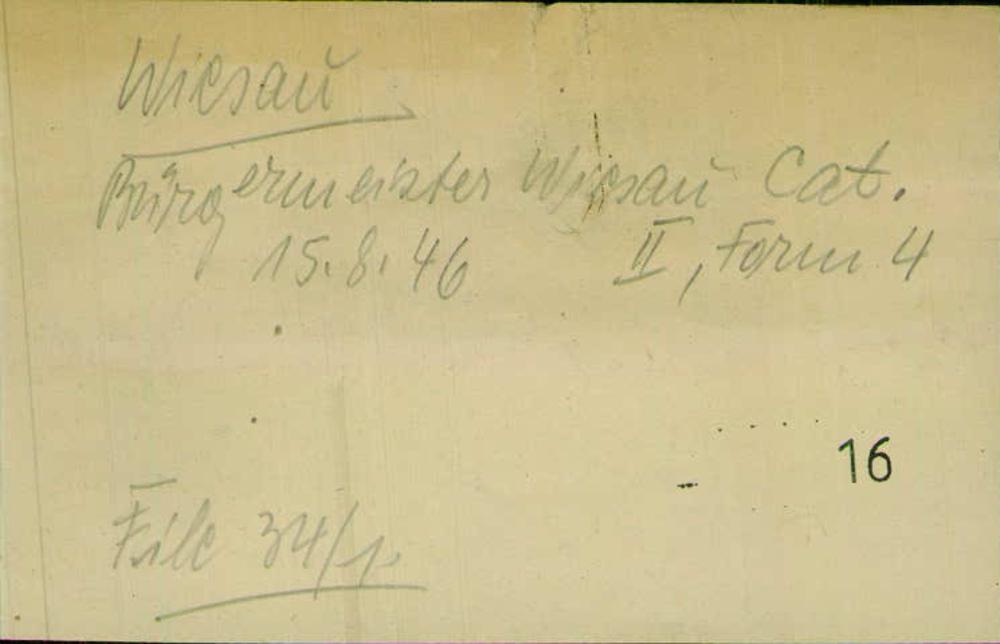 Wiesau
Bürgermeister Wiesau Cat.
15.8.46 II, Form 4
16
File 34/1.